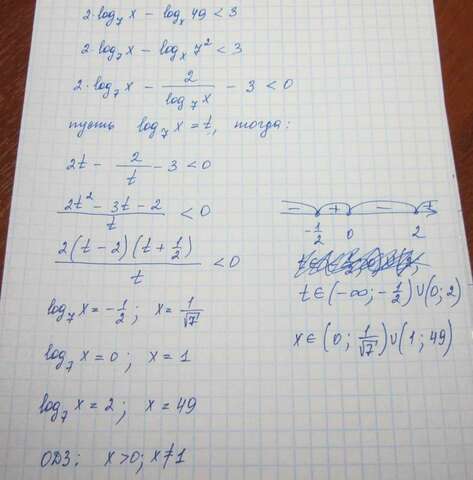 2·log₇ x − logₓ 49 < 3
2·log₇ x − logₓ 7² < 3
2·log₇ x − 2/log₇ x − 3 < 0
пусть log₇ x = t, тогда:
2t − 2/t − 3 < 0
(2t² − 3t − 2)/t < 0
2(t − 2)(t + 1/2)/t < 0
log₇ x = −1/2; x = 1/√7
log₇ x = 0; x = 1
log₇ x = 2; x = 49
ОДЗ: x > 0; x ≠ 1
− + − +
−1/2 0 2
t ∈ (−∞; −1/2) ∪ (0; 2)
x ∈ (0; 1/√7) ∪ (1; 49)